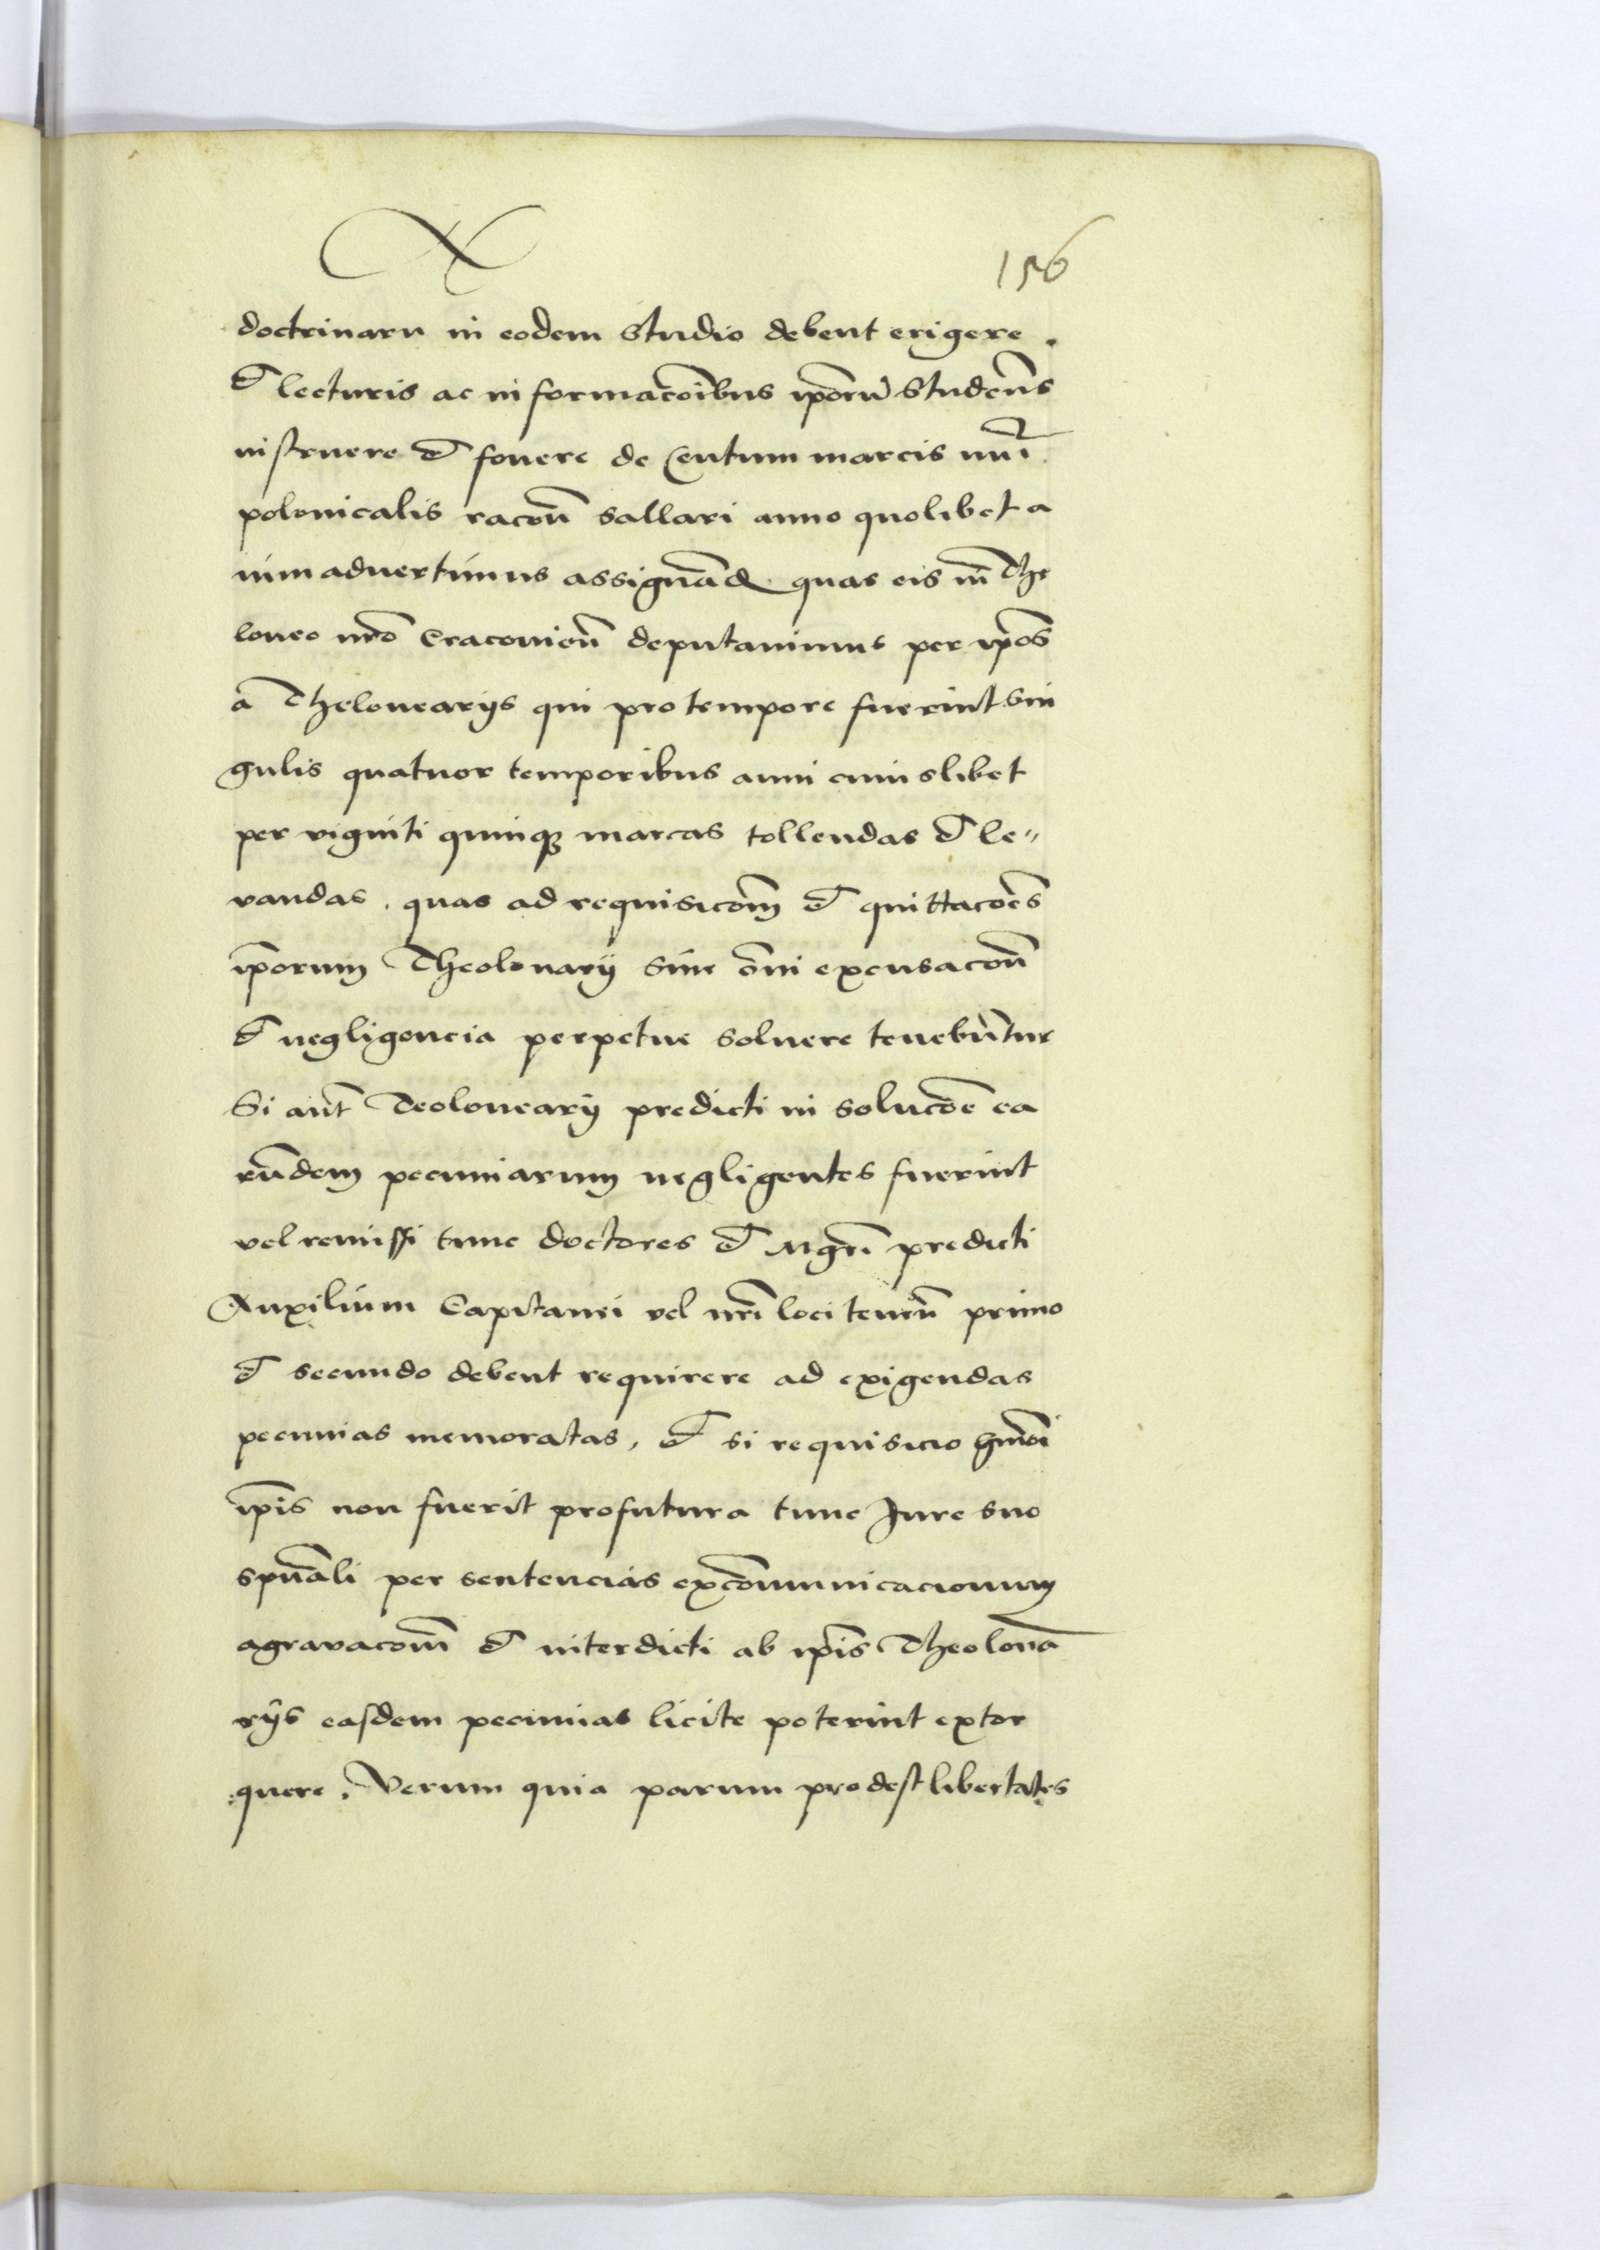 156
doctrinaru in eodem Studio debent erigere.
et lecturis ac informacõibus ipõrũ Studẽns
instruere et fovere de Centum marcis num̃
polonicalis racoñ sallari anno quolibet a
nimaduertimus assignãd quas eis iñ The
loneo nr̃o Cracovien̄ deputavimus per ip̃os
a Thelonearijs qui pro tempore fuerint Sin
gulis quatuor temporibus anni cuiuslibet
per viginti quinq̃ marcas tollendas et le=
vandas. quas ad requisicõm et quittacõẽs
ip̃orum Theolonarij Sine om̃i excusacoñ
et negligencia perpetue solvere tenebũntur
Si aũt Teolonearij predicti in solucõe ea
rũdem pecuniarum negligentes fuerint
vel remissi tunc doctores et Mgr̃i predicti
Auxilium Capitanei vel nr̃i loci teneñ primo
et secundo debent requirere ad exigendas
pecunias memoratas, et si requisicio hmõi
ip̃is non fuerit profutura tunc Jure suo
spũali per sentencias excõmunicacionum
agravacom̃ et interdicti ab ip̃is Theolonã
rijs easdem pecunias licite poterint extor
quere. Verum quia parum prodest libertates